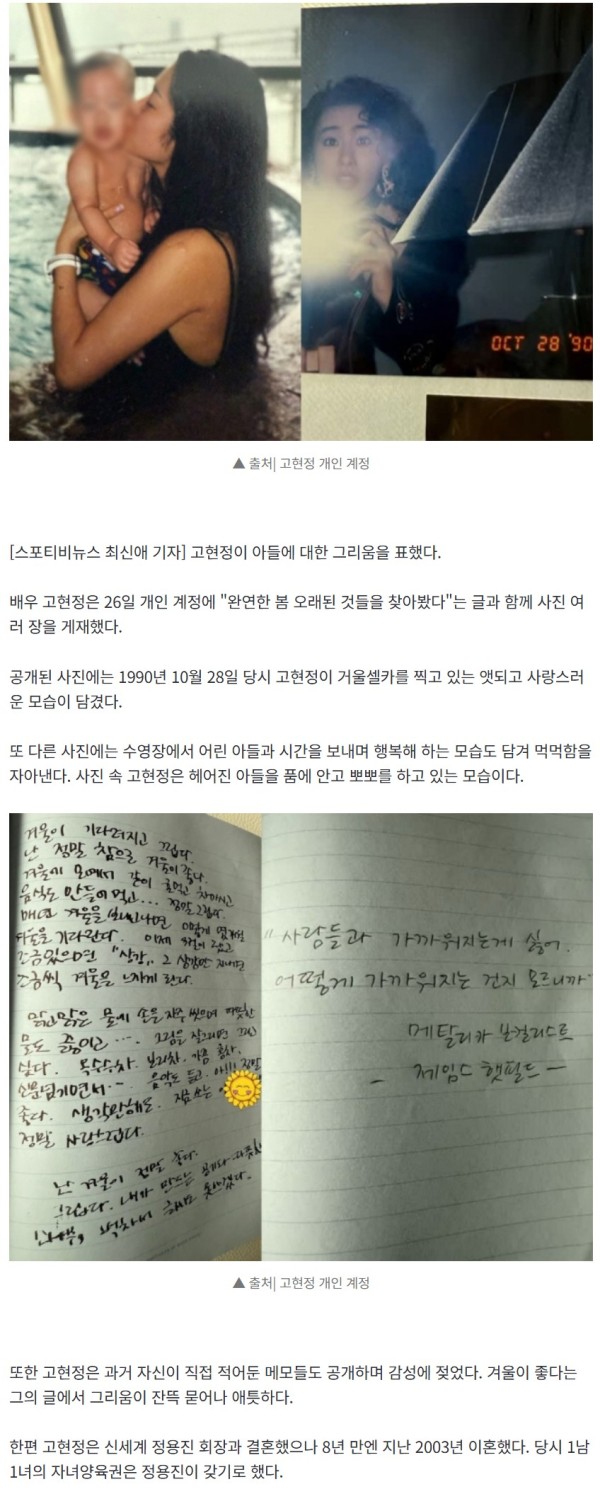 OCT 28 '90
▲ 출처| 고현정 개인 계정
[스포티비뉴스 최신애 기자] 고현정이 아들에 대한 그리움을 표했다.
배우 고현정은 26일 개인 계정에 "완연한 봄 오래된 것들을 찾아봤다"는 글과 함께 사진 여
러 장을 게재했다.
공개된 사진에는 1990년 10월 28일 당시 고현정이 거울셀카를 찍고 있는 앳되고 사랑스러
운 모습이 담겼다.
또 다른 사진에는 수영장에서 어린 아들과 시간을 보내며 행복해 하는 모습도 담겨 먹먹함을
자아낸다. 사진 속 고현정은 헤어진 아들을 품에 안고 뽀뽀를 하고 있는 모습이다.
겨울이 기다려지고 그립다.
난 정말 참으로 겨울이 좋다.
음식도 만들어 먹고... 정말 그립다.
겨울을 기다린다. 이제
조금있으면 "삼강", 그 삼강만 지나면
조금씩 겨울을 느끼게 된다.
맑고맑은 물에 손을 자주 씻으며 따뜻한
물도 좋이고.... 그림을 잘 그리면 그리고
싶다. 옥수수차. 보리차. 가끔 홍차.
좋다. 생각만해도. 지금 쓰는
정말 사랑스럽다.
난 겨울이 정말 좋다.
그립다. 내가 만드는
"사람들과 가까워지는게 싫어.
어떻게 가까워지는 건지 모르니까"
메탈리카 보컬리스트
- 제임스 햇필드 -
▲ 출처| 고현정 개인 계정
또한 고현정은 과거 자신이 직접 적어둔 메모들도 공개하며 감성에 젖었다. 겨울이 좋다는
그의 글에서 그리움이 잔뜩 묻어나 애틋하다.
한편 고현정은 신세계 정용진 회장과 결혼했으나 8년 만엔 지난 2003년 이혼했다. 당시 1남
1녀의 자녀양육권은 정용진이 갖기로 했다.